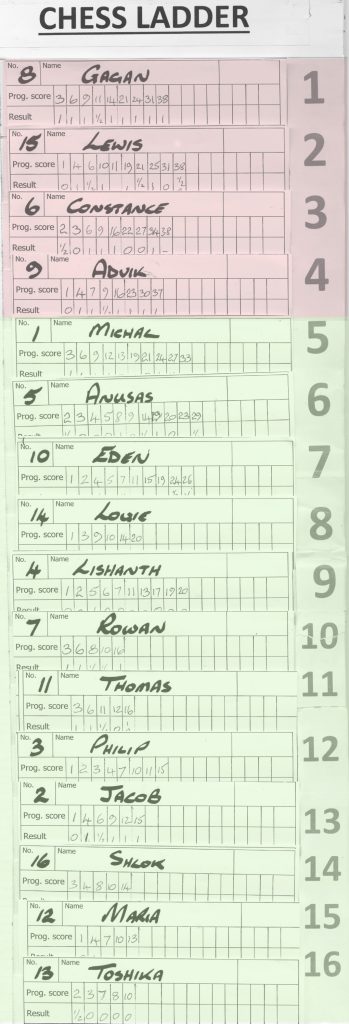 CHESS LADDER
No. 8 Name GAGAN 1
Prog. score 3 6 9 11 14 21 24 31 38
Result 1 1 1 ½ 1 1 1 1 1
No. 15 Name LEWIS 2
Prog. score 1 4 6 10 11 19 21 25 31 38
Result 0 1 ½ 1 ½ 1 0 ½
No. 6 Name CONSTANCE 3
Prog. score 2 3 6 9 16 22 27 34 38
Result ½ 0 1 1 1 0 0 1 -
No. 9 Name ADVIK 4
Prog. score 1 4 7 9 16 23 30 37
Result
No. 1 Name MICHAL 5
Prog. score 3 6 9 12 13 19 21 24 27 33
No. 5 Name ANUSAS 6
Prog. score 2 3 4 5 8 9 14 20 23 29
No. 10 Name EDEN 7
Prog. score 1 2 4 5 7 11 15 19 24 26
No. 14 Name LOWIE 8
Prog. score 1 3 9 10 14 20
No. 4 Name LISHANTH 9
Prog. score 1 2 5 6 7 11 13 17 19 20
No. 7 Name ROWAN 10
Prog. score 3 6 8 10 16
No. 11 Name THOMAS 11
Prog. score 3 6 11 12 16
Result
No. 3 Name PHILIP 12
Prog. score 1 2 3 4 7 10 11 15
No. 2 Name JACOB 13
Prog. score 1 4 6 9 12 15
Result 0 1 ½ 1 1 1
No. 16 Name SHLOK 14
Prog. score 3 4 8 10 14
No. 12 Name MARIA 15
Prog. score 1 4 7 10 13
No. 13 Name TOSHIKA 16
Prog. score 2 3 7 8 10
Result ½ 0 0 0 0